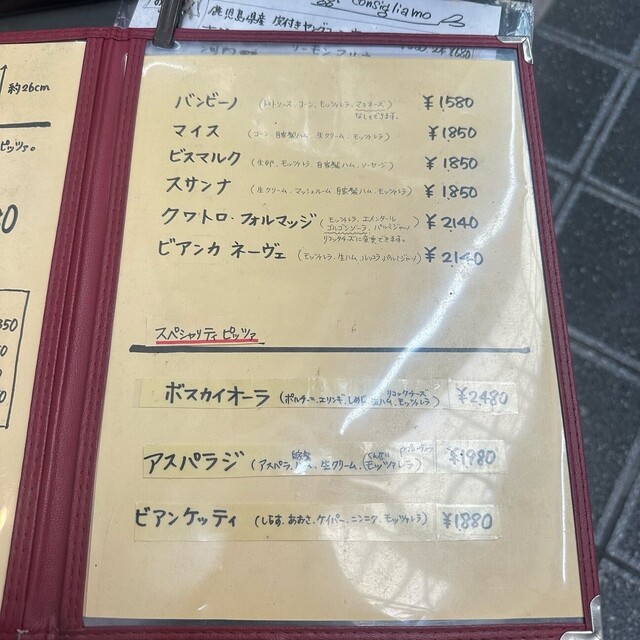 consigliamo
鹿児島県産 皮付きヤング
約26cm
ピッツァ。
バンビーノ (トマトソース、コーン、モッツァレラ、マヨネーズ) ¥1580
なしもできます。
マイス (コーン、自家製ハム、生クリーム、モッツァレラ) ¥1850
ビスマルク (生卵、モッツァレラ、自家製ハム、ソーセージ) ¥1850
スサンナ (生クリーム、マッシュルーム、自家製ハム、モッツァレラ) ¥1850
クワトロ・フォルマッジ (モッツァレラ、エメンタール ¥2140
ゴルゴンゾーラ、パルミジャーノ)
リコッタチーズに変更できます。
ビアンカ ネーヴェ (モッツァレラ、生ハム、ルッコラ、パルミジャーノ) ¥2140
スペシャリティ ピッツァ
ボスカイオーラ (ポルチーニ、エリンギ、しめじ、生ハム、モッツァレラ) ¥2480
リコッタチーズ
アスパラジ (アスパラ、ハム、生クリーム、モッツァレラ) ¥1980
ビアンケッティ (しらす、あおさ、ケイパー、ニンニク、モッツァレラ) ¥1880
350